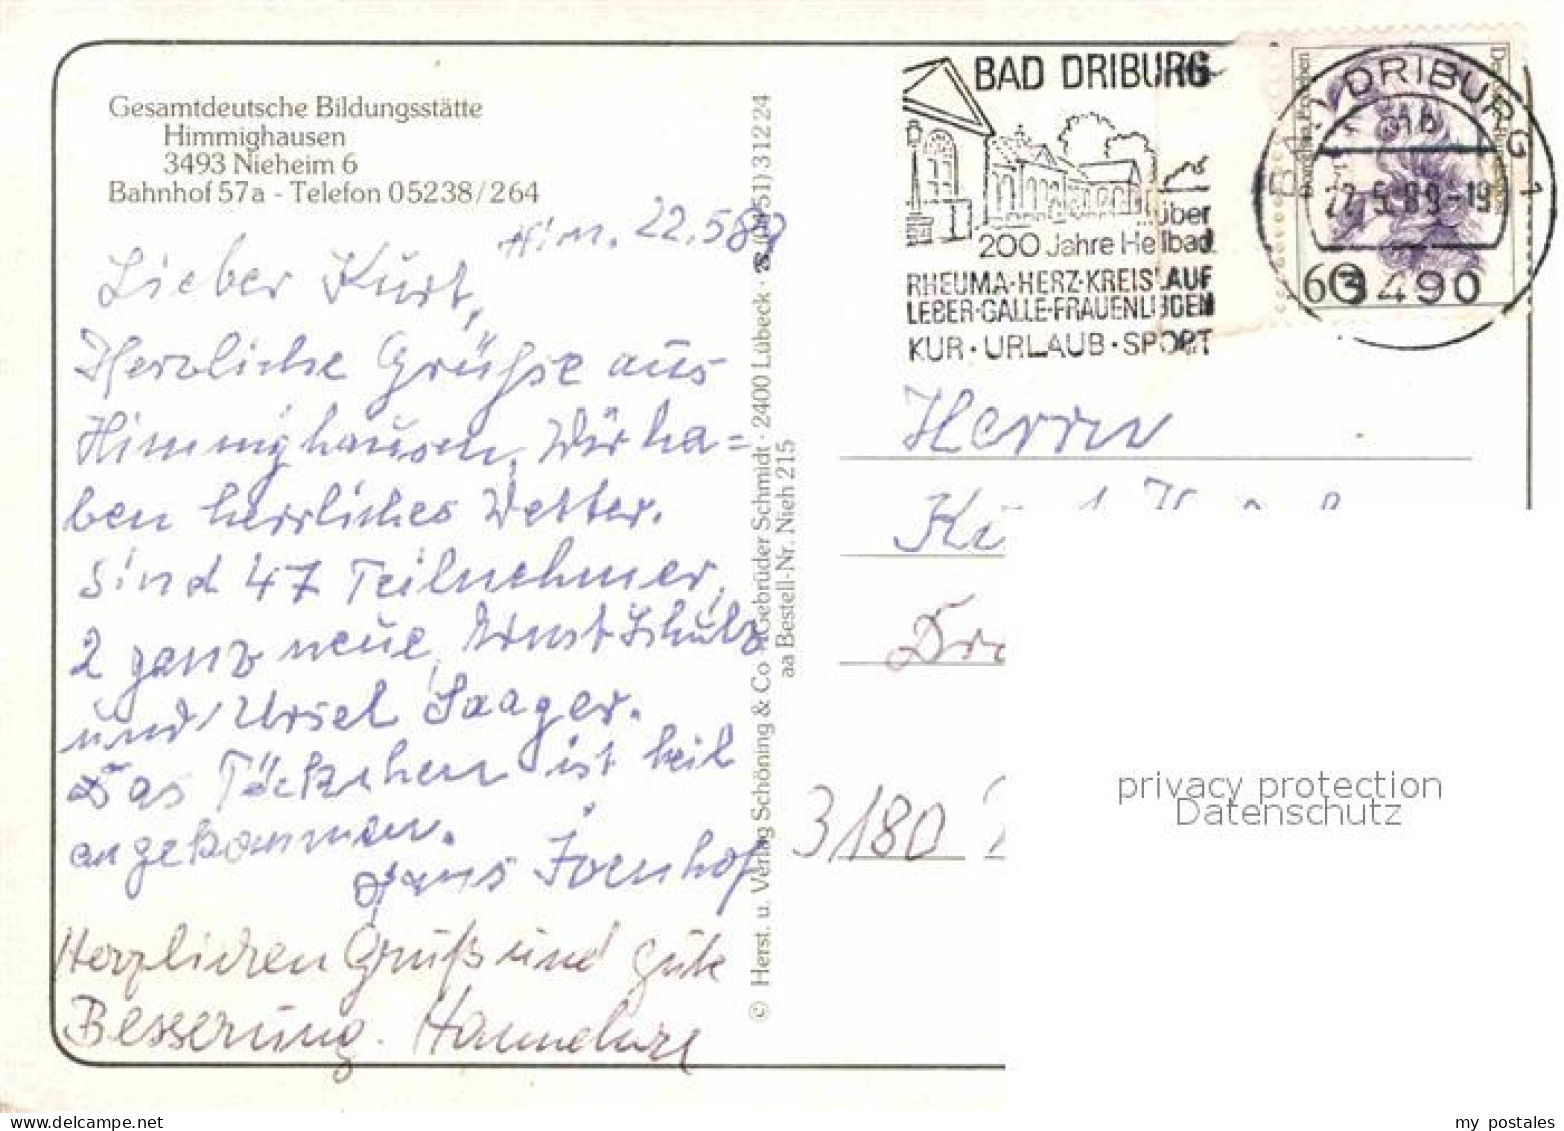 Gesamtdeutsche Bildungsstätte
Himmighausen
3493 Nieheim 6
Bahnhof 57a - Telefon 05238/264
Him. 22.5.89
Lieber Kurt,
Herzliche Grüße aus
Himmighausen, Wir ha=
ben herrliches Wetter.
Sind 47 Teilnehmer,
2 ganz neue, Ernst Schulz
und Ursel Saager.
Das Päckchen ist heil
angekommen.
Hans
Herzlichen Gruß und gute
Besserung. Hannelore
© Herst. u. Verlag Schöning & Co + Gebrüder Schmidt · 2400 Lübeck · ☎ (0451) 31224
aa Bestell-Nr. Nieh 215
BAD DRIBURG
über
200 Jahre Heilbad
RHEUMA·HERZ·KREISLAUF
LEBER·GALLE·FRAUENLEIDEN
KUR · URLAUB · SPORT
BAD DRIBURG 1
mb
22.5.89-19
3490
60
Herrn
3180
privacy protection
Datenschutz
my postales